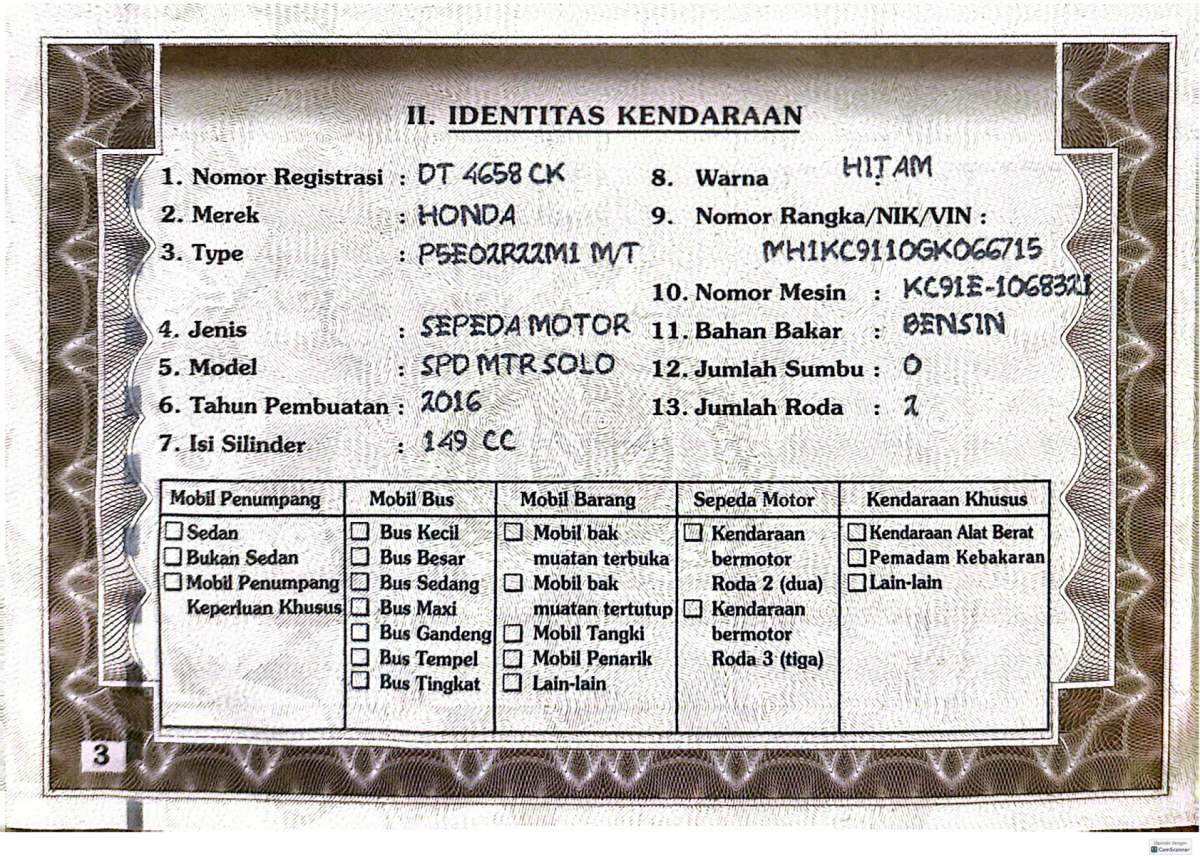 II. IDENTITAS KENDARAAN
1. Nomor Registrasi : DT 4658 CK
2. Merek : HONDA
3. Type : P5E02R22M1 M/T
4. Jenis : SEPEDA MOTOR
5. Model : SPD MTR SOLO
6. Tahun Pembuatan : 2016
7. Isi Silinder : 149 CC
8. Warna : HITAM
9. Nomor Rangka/NIK/VIN :
MH1KC9110GK066715
10. Nomor Mesin : KC91E-1068321
11. Bahan Bakar : BENSIN
12. Jumlah Sumbu : 0
13. Jumlah Roda : 2
Mobil Penumpang
Sedan
Bukan Sedan
Mobil Penumpang
Keperluan Khusus
Mobil Bus
Bus Kecil
Bus Besar
Bus Sedang
Bus Maxi
Bus Gandeng
Bus Tempel
Bus Tingkat
Mobil Barang
Mobil bak
muatan terbuka
Mobil bak
muatan tertutup
Mobil Tangki
Mobil Penarik
Lain-lain
Sepeda Motor
Kendaraan
bermotor
Roda 2 (dua)
Kendaraan
bermotor
Roda 3 (tiga)
Kendaraan Khusus
Kendaraan Alat Berat
Pemadam Kebakaran
Lain-lain
3
Dipindai dengan
CamScanner